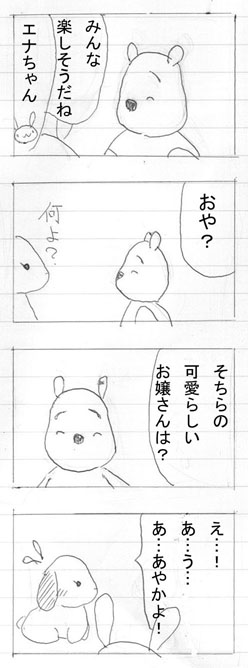 みんな
楽しそうだね
エナちゃん
おや？
何よ？
そちらの
可愛らしい
お嬢さんは？
え…！
あ…う…
あ…あやかよ！